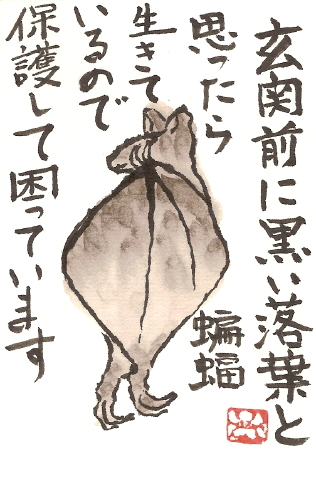 玄関前に黒い落葉と
思ったら
生きて
いるので
保護して困っています
蝙蝠